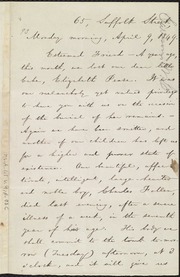 65, Suffolk Street,
Monday morning, April 9, 1849.
Esteemed Friend — A year ago,
this month, we lost our dear little
babe, Elizabeth Pease. It was
our melancholy, yet valued privilege
to have you with us on the occasion
of the burial of her remains.
Again we have been smitten, and
another of our children has left us
for a higher and purer state of
existence. Our beautiful, affec-
tionate, intelligent, large-hearted
and noble boy, Charles Follen,
died last evening, after a severe
illness of a week, in the seventh
year of his age. His body we
shall commit to the tomb to-mor-
row (Tuesday) afternoon, at 3
o'clock, and it will give us